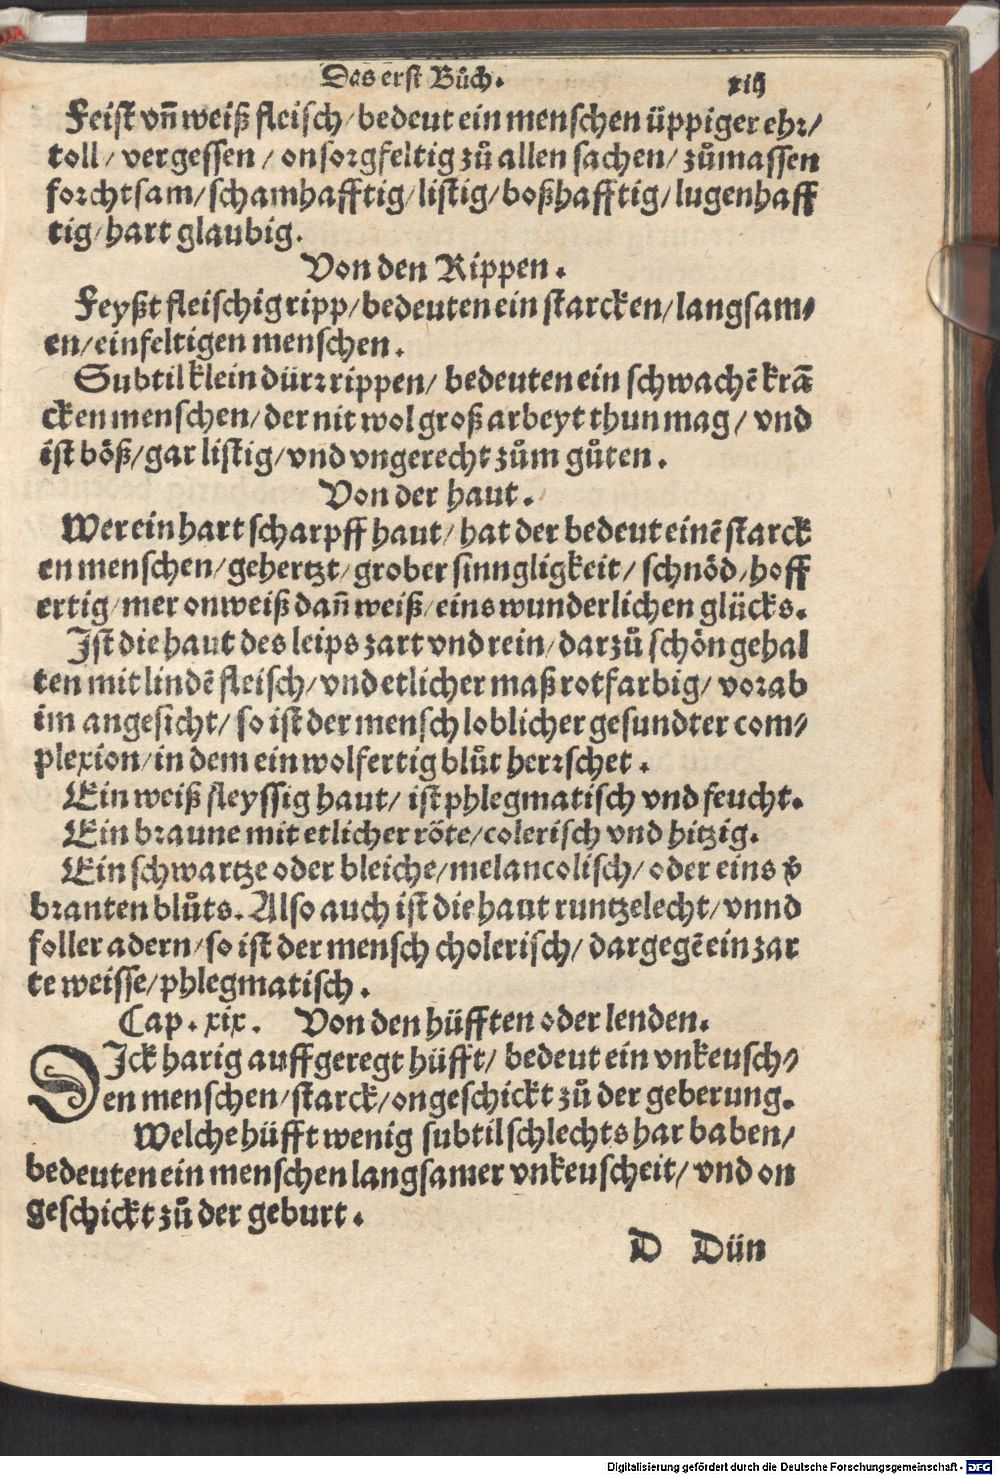 Das erst Bůch. xiij
Feist vñ weiß fleisch/ bedeut ein menschen üppiger ehr/
toll/ vergessen/ onsorgfeltig zů allen sachen/ zůmassen
forchtsam/ schamhafftig/ listig/ boßhafftig/ lugenhaff
tig/ hart glaubig.
Von den Rippen.
Feyßt fleischig ripp/ bedeuten ein starcken/ langsam⸗
en/ einfeltigen menschen.
Subtil klein dürr rippen/ bedeuten ein schwachē krā
cken menschen/ der nit wol groß arbeyt thun mag/ vnd
ist böß/ gar listig/ vnd vngerecht zům gůten.
Von der haut.
Wer ein hart scharpff haut/ hat der bedeut einē starck
en menschen/ gehertzt/ grober sinngligkeit/ schnöd/ hoff
ertig/ mer onweiß dañ weiß/ eins wunderlichen glücks.
Ist die haut des leips zart vnd rein/ darzů schön gehal
ten mit lindē fleisch/ vnd etlicher maß rotfarbig/ vorab
im angesicht/ so ist der mensch loblicher gesundter com⸗
plexion/ in dem ein wolfertig blůt herrschet.
Ein weiß fleyssig haut/ ist phlegmatisch vnd feucht.
Ein braune mit etlicher röte/ colerisch vnd hitzig.
Ein schwartze oder bleiche/ melancolisch/ oder eins v̈
branten blůts. Also auch ist die haut runtzelecht/ vnnd
foller adern/ so ist der mensch cholerisch/ dargegē ein zar
te weisse/ phlegmatisch.
Cap. xix. Von den hüfften oder lenden.
DIck harig auffgeregt hüfft/ bedeut ein vnkeusch⸗
en menschen/ starck/ ongeschickt zů der geberung.
Welche hüfft wenig subtil schlechts har haben/
bedeuten ein menschen langsamer vnkeuscheit/ vnd on
geschickt zů der geburt.
D Dün
Digitalisierung gefördert durch die Deutsche Forschungsgemeinschaft - DFG